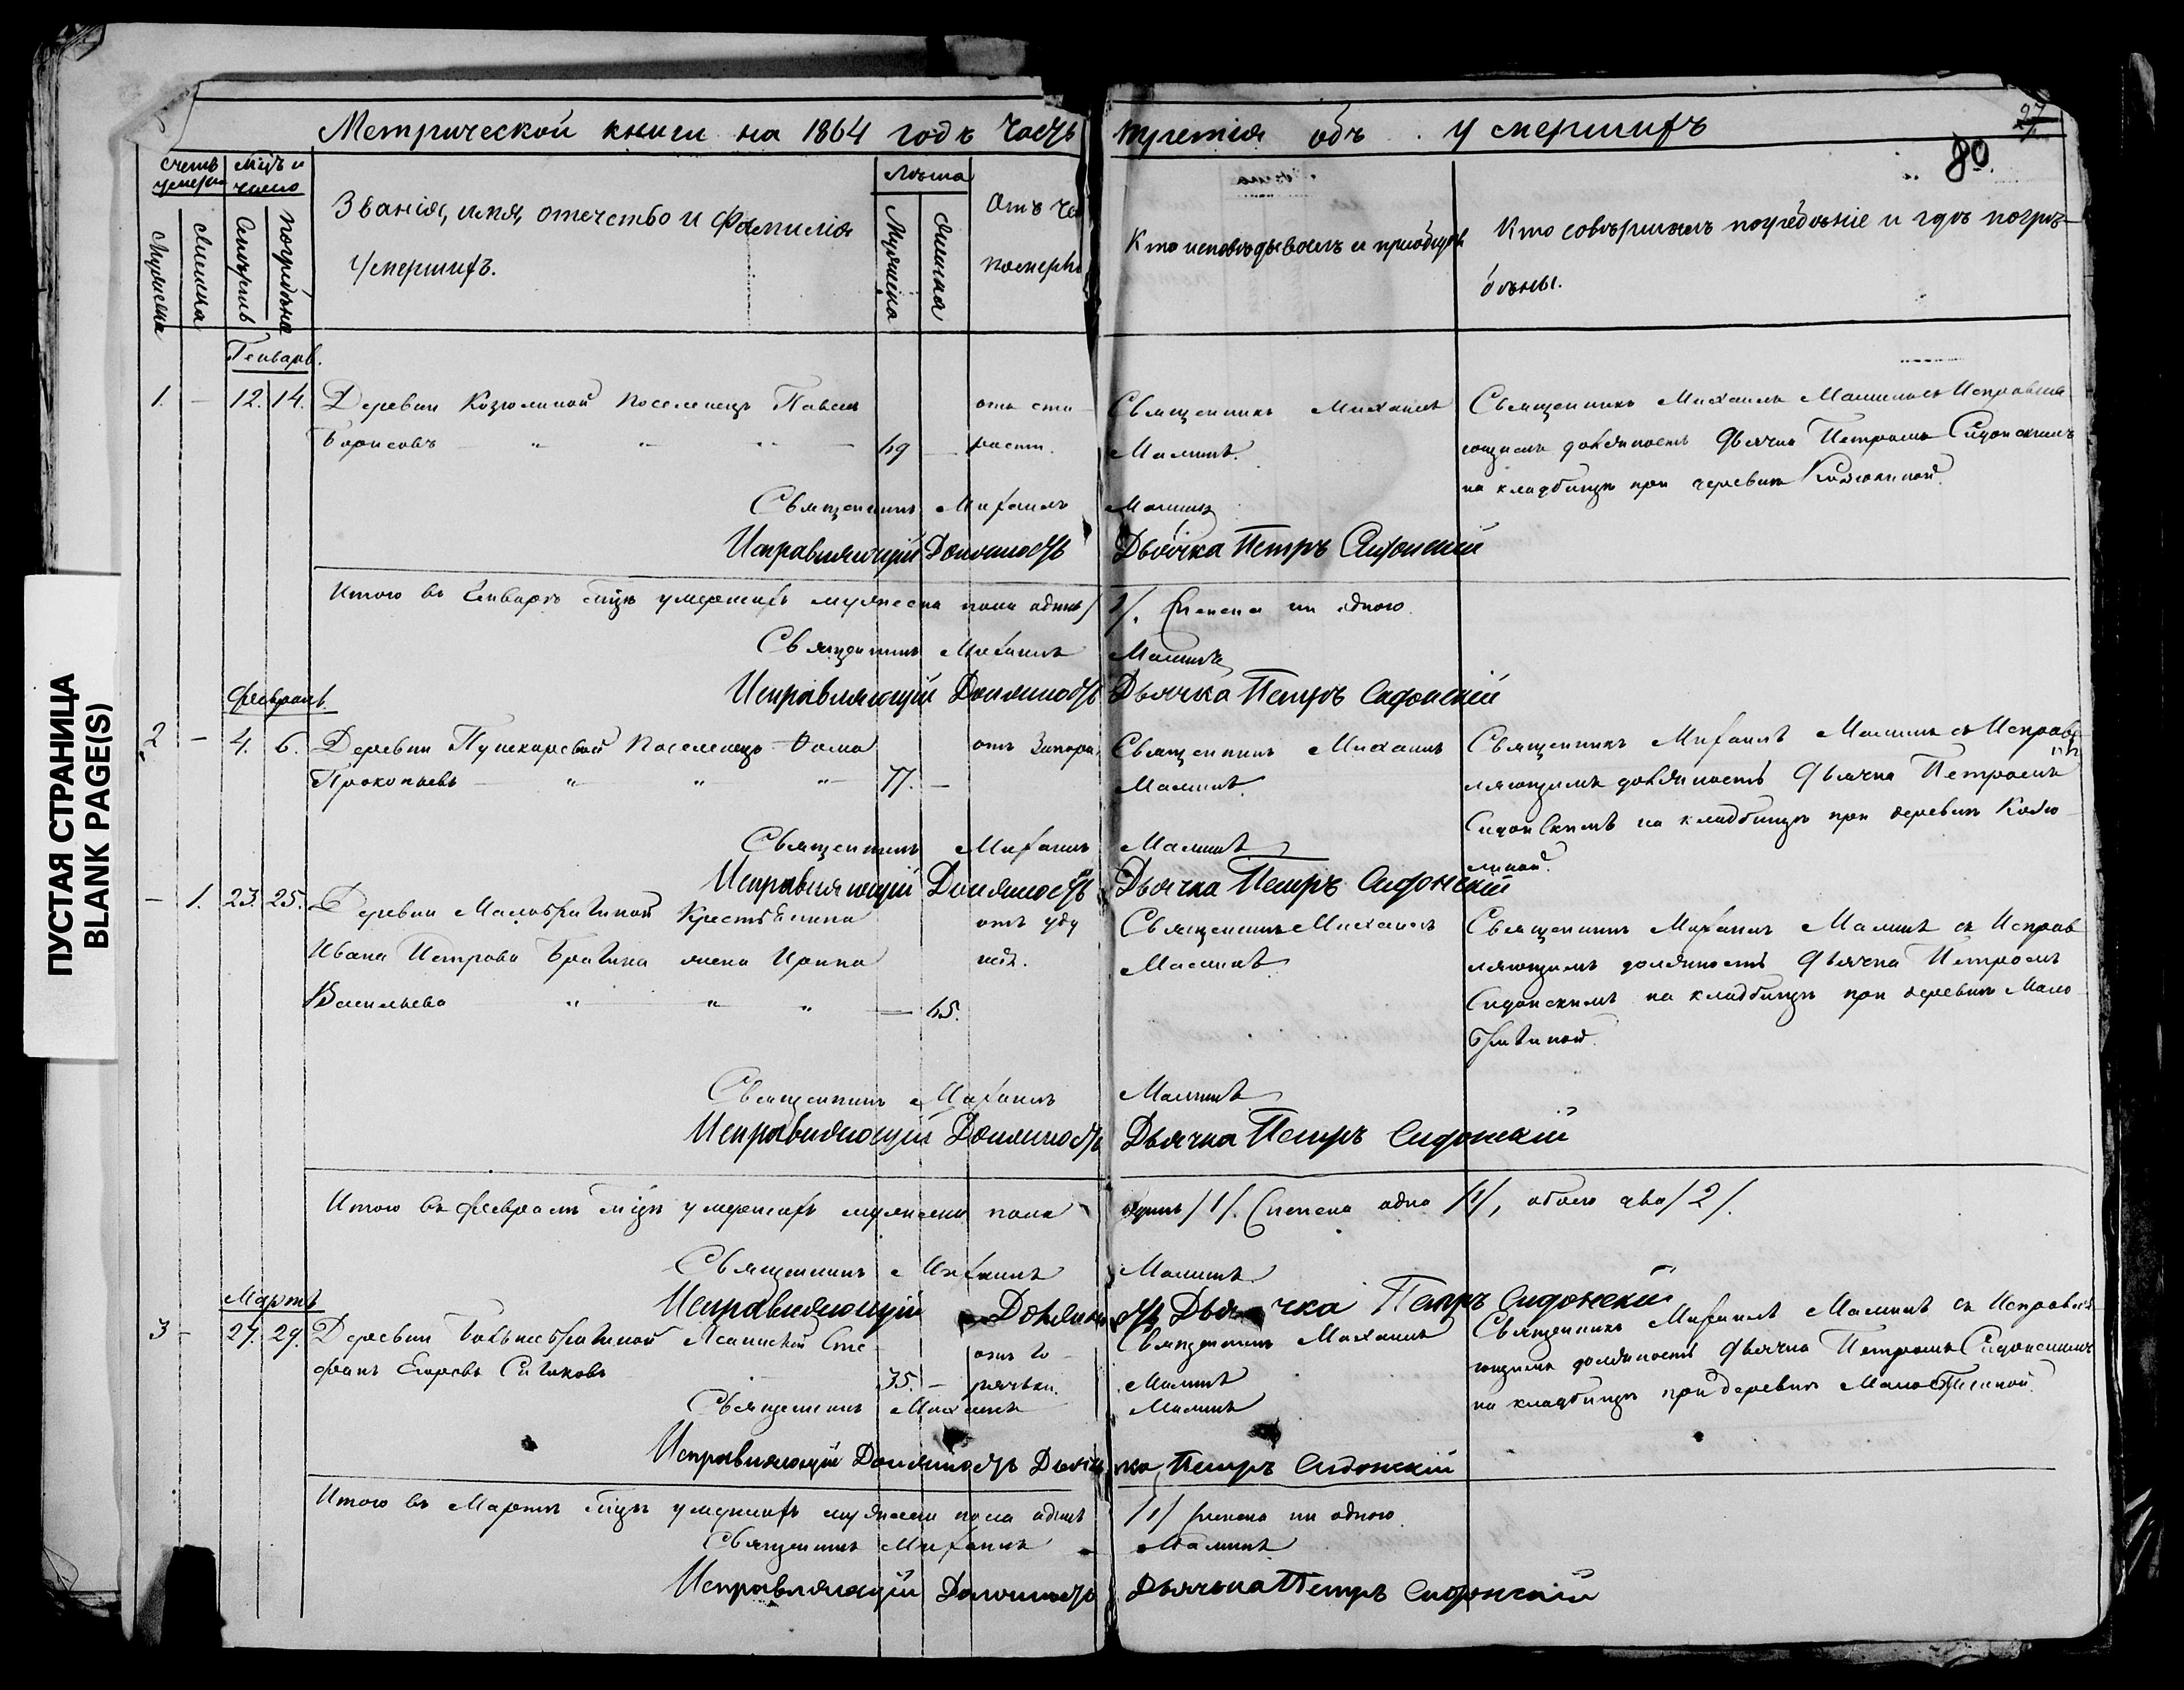 Метрической книги на 1864 годъ часть третія объ умершихъ
27
80.
Счетъ умерш.
Мужеска
Женска
Мцъ и число
Смерть
Погребенія
Званія, имя, отчество и Фамилія
Умершихъ.
Лѣта
Мужеска
Женска
Отъ че
померъ
Кто исповѣдывалъ и пріобщалъ
Кто совѣршалъ погребѣніе и гдѣ погрѣ-
бѣны.
Генварь.
1. – 12. 14. Деревни Козюлиной Поселенецъ Павелъ
Борисовъ 69 –
отъ ста-
рости.
Священникъ Михаилъ
Малинъ.
Священникъ Михаилъ Малинъ съ Исправля
ющимъ должность Дьячка Петромъ Сидонскимъ
на кладбищѣ при деревнѣ Козюлиной.
Священникъ Михаилъ Малинъ
Исправляющій Должность Дьячка Петръ Сидонскій
Итого въ Генварѣ мцѣ умершихъ мужеска пола одинъ /1/. Женска ни одного.
Священникъ Михаилъ Малинъ
Исправляющій Должность Дьячка Петръ Сидонскій
Февраль.
2 – 4. 6. Деревни Пушкаревой Поселенецъ Фома
Прокопьевъ 77. –
отъ Запора,
Священникъ Михаилъ
Малинъ.
Священникъ Михаилъ Малинъ съ Исправ-
ляющимъ должность Дьячка Петромъ
Сидонскимъ на кладбищѣ при деревнѣ Козю-
линой.
Священникъ Михаилъ Малинъ
Исправляющій Должность Дьячка Петръ Сидонскій
– 1. 23. 25. Деревни Малобрагиной Крестьянина
Ивана Петрова Брагина жена Ирина
Васильева – 65.
отъ уду
шья.
Священникъ Михаилъ
Малинъ.
Священникъ Михаилъ Малинъ съ Исправ
ляющимъ должность Дьячка Петромъ
Сидонскимъ на кладбищѣ при деревнѣ Мало
брагиной.
Священникъ Михаилъ Малинъ
Исправляющій Должность Дьячка Петръ Сидонскій
Итого въ Февралѣ мцѣ умершихъ мужеска пола одинъ /1/. Женска одна /1/, обоего два /2/.
Священникъ Михаилъ Малинъ
Исправляющій Должность Дьячка Петръ Сидонскій
Мартъ
3 – 27. 29. Деревни Сте-
фанъ Егоровъ 35. –
отъ го-
рячьки.
Священникъ Михаилъ
Малинъ
Священникъ Михаилъ Малинъ съ Исправля-
ющимъ должность Дьячка Петромъ Сидонскимъ
на кладбищѣ при деревнѣ Малобрагиной.
Священникъ Михаилъ Малинъ
Исправляющій Должность Дьячка Петръ Сидонскій
Итого въ Мартѣ мцѣ умершихъ мужеска пола одинъ /1/ Женска ни одного.
Священникъ Михаилъ Малинъ
Исправляющій Должность Дьячька Петръ Сидонскій
ПУСТАЯ СТРАНИЦА
BLANK PAGE(S)